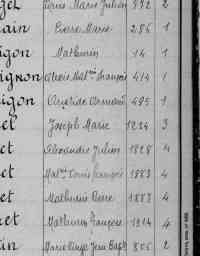 Marie Julien 592 2
ain Pierre Marie 286 1
igon Mathurin 14 1
ignon Alexis Mal. François 414 1
igon Aristide Armand 495 1
et Joseph Marie 1224 3
et Alexandre Julien 1828 4
et Louis François 1863 4
et Mathurin Pierre 1887 4
et Mathurin François 1914 4
in Marie Ange Jean Bapt 805 2